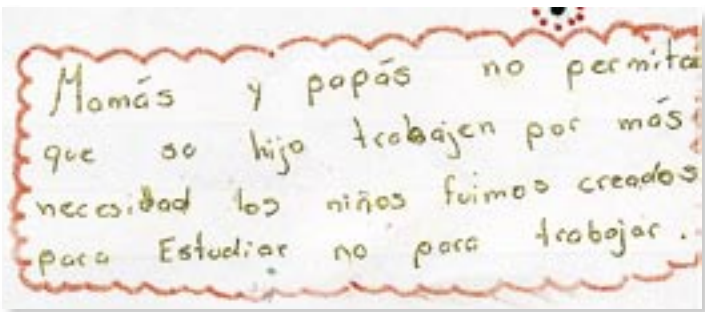 Mamás y papás no permita
que su hijo trabajen por más
necesidad los niños fuimos creados
para Estudiar no para trabajar.